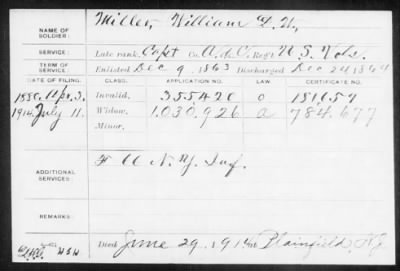 NAME OF SOLDIER: Miller, William
SERVICE: Late rank, Capt Co. A.d.C., Reg't U S Vols.
TERM OF SERVICE: Enlisted Dec 9, 1863 Discharged Dec 24 1864
DATE OF FILING. CLASS. APPLICATION NO. LAW. CERTIFICATE NO.
1880, Apr. 3. Invalid, 355420
1914, July 11. Widow, 1.030.926 a 784.677
Minor,
ADDITIONAL SERVICES: F N.Y. Inf.
REMARKS:
Died June 29, 1914 at Plainfield, N.J.